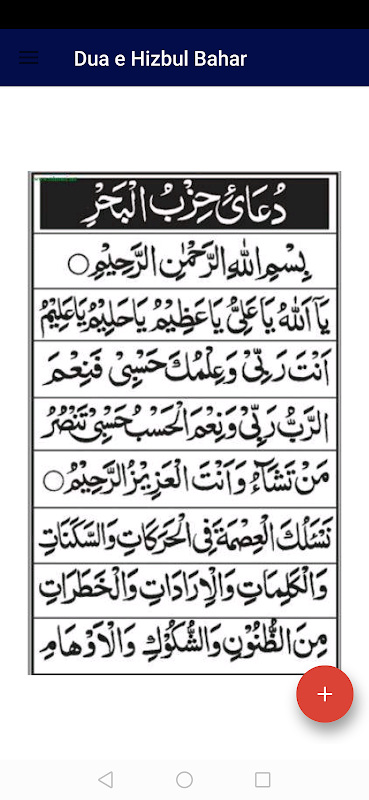 Dua e Hizbul Bahar
دُعَائ حِزْبُ الْبَحْرِ
بِسْمِ اللهِ الرَّحْمٰنِ الرَّحِيْمِ○
يَآ اَللهُ يَا عَلِيُّ يَا عَظِيْمُ يَا حَلِيْمُ يَا عَلِيْمُ
اَنْتَ رَبِّيْ وَعِلْمُكَ حَسْبِيْ فَنِعْمَ
الرَّبُّ رَبِّيْ وَنِعْمَ الْحَسْبُ حَسْبِيْ تَنْصُرُ
مَنْ تَشَآءُ وَاَنْتَ الْعَزِيْزُ الرَّحِيْمُ○
نَسْئَلُكَ الْعِصْمَةَ فِي الْحَرَكَاتِ وَالسَّكَنَاتِ
وَالْكَلِمَاتِ وَالْاِرَادَاتِ وَالْخَطَرَاتِ
مِنَ الظُّنُوْنِ وَالشُّكُوْكِ وَالْاَوْهَامِ